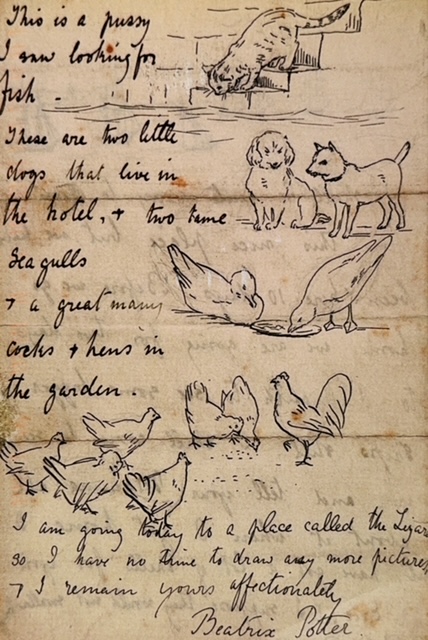 This is a pussy
I saw looking for
fish.
These are two little
dogs that live in
the hotel, + two tame
Sea gulls
+ a great many
cocks + hens in
the garden.
I am going today to a place called the Lizard
so I have no time to draw any more pictures
+ I remain yours affectionately
Beatrix Potter